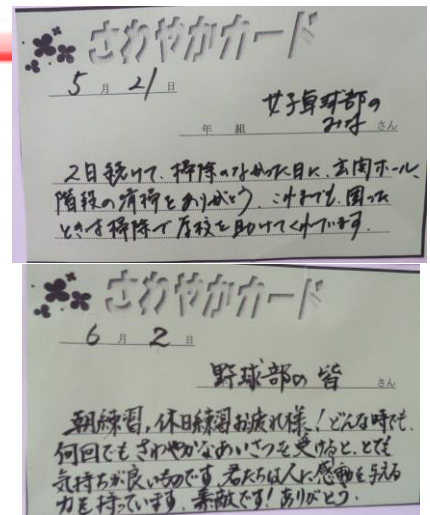 さわやかカード
5月21日
女子卓球部の
年 組 みな さん
2日続けて、掃除のなかった日に、玄関ホール、
階段の清掃をありがとう。これまでも、困った
ときを掃除で学校を助けてくれています。
さわやかカード
6月2日
野球部の皆さん
朝練習,休日練習お疲れ様!どんな時でも、
何回でもさわやかなあいさつを受けると、とても
気持ちが良いものです。君たちは人に感動を与える
力を持っています。素敵です!ありがとう。